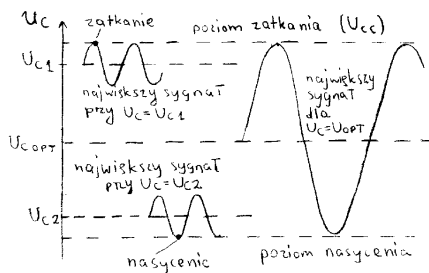 u_C
zatkanie
poziom zatkania (U_CC)
U_C1
największy sygnał
przy U_C=U_C1
największy
sygnał
dla
U_C=U_OPT
U_C OPT
największy sygnał
przy U_C=U_C2
U_C2
nasycenie
poziom nasycenia